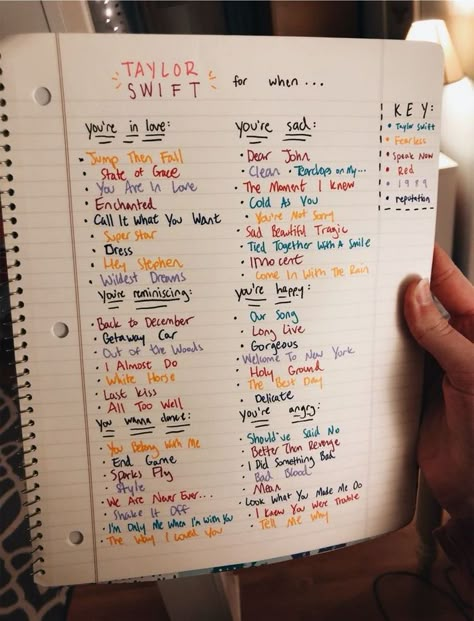 TAYLOR
SWIFT
for when...
you're in love:
• Jump Then Fall
• State of Grace
• You Are In Love
• Enchanted
• Call It What You Want
• Super Star
• Dress
• Hey Stephen
• Wildest Dreams
you're reminiscing:
• Back to December
• Getaway Car
• Out of the Woods
• I Almost Do
• White Horse
• Last Kiss
• All Too Well
you wanna dance:
• You Belong With Me
• End Game
• Sparks Fly
• Style
• We Are Never Ever...
• Shake It Off
• I'm Only Me When I'm With You
• The Way I Loved You
you're sad:
• Dear John
• Clean • Teardrops on My...
• The Moment I Knew
• Cold As You
• You're Not Sorry
• Sad Beautiful Tragic
• Tied Together With A Smile
• Innocent
• Come In With The Rain
you're happy:
• Our Song
• Long Live
• Gorgeous
• Welcome To New York
• Holy Ground
• The Best Day
• Delicate
you're angry:
• Should've Said No
• Better Than Revenge
• I Did Something Bad
• Bad Blood
• Mean
• Look What You Made Me Do
• I Knew You Were Trouble
• Tell Me Why
KEY:
• Taylor Swift
• Fearless
• Speak Now
• Red
• 1989
• reputation